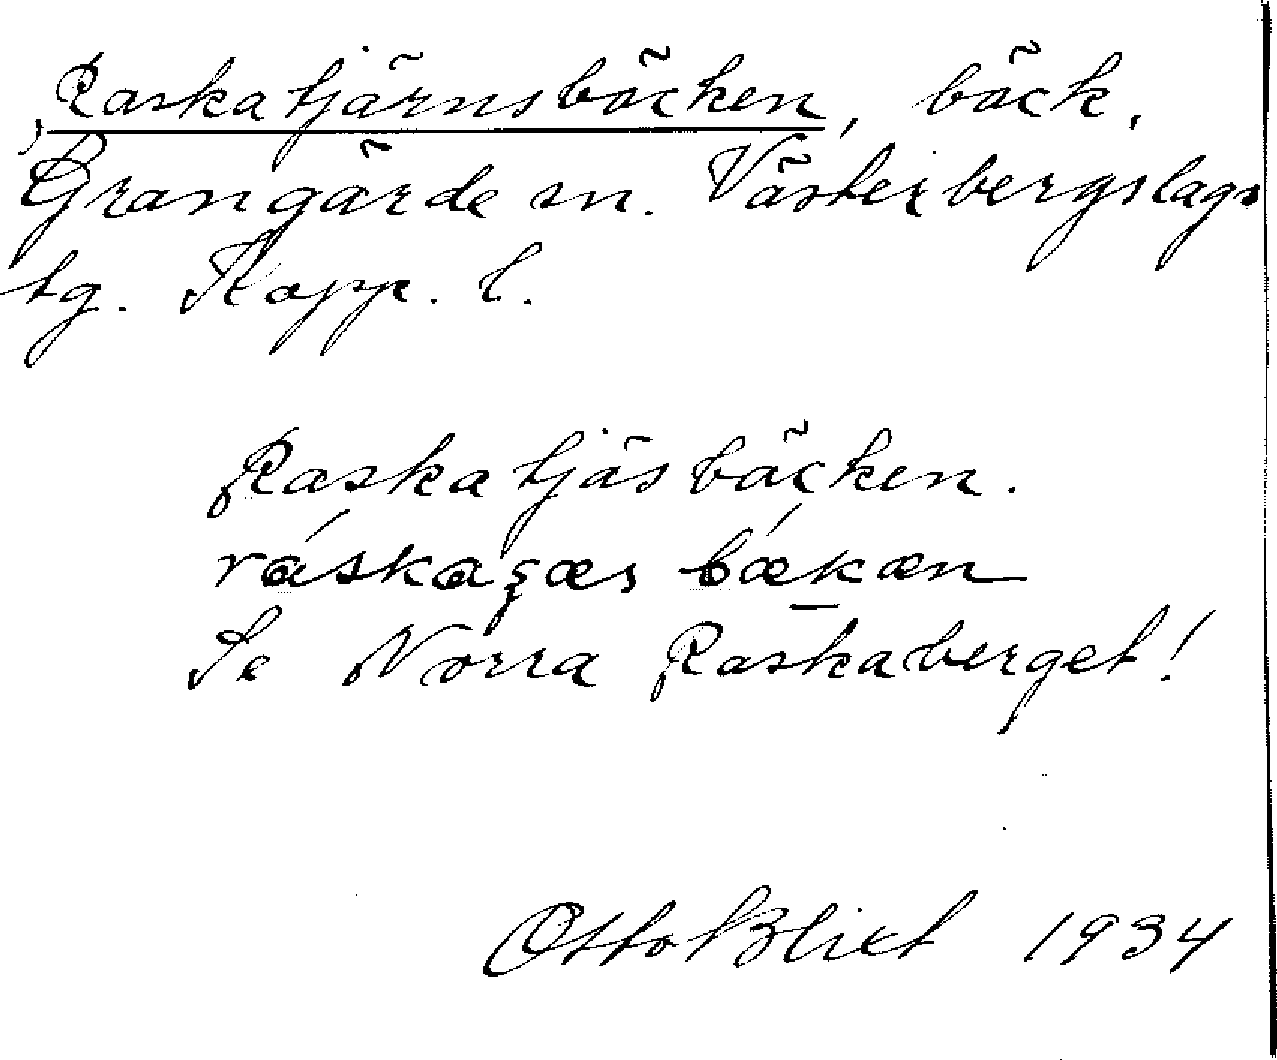 Raskatjärnsbäcken, bäck,
Grangärde sn. Västerbergslags
tg. Kopp. l.
Raskatjäsbäcken.
ráskaçæs bǽkæn
Se Norra Raskaberget!
Otto Blixt 1934